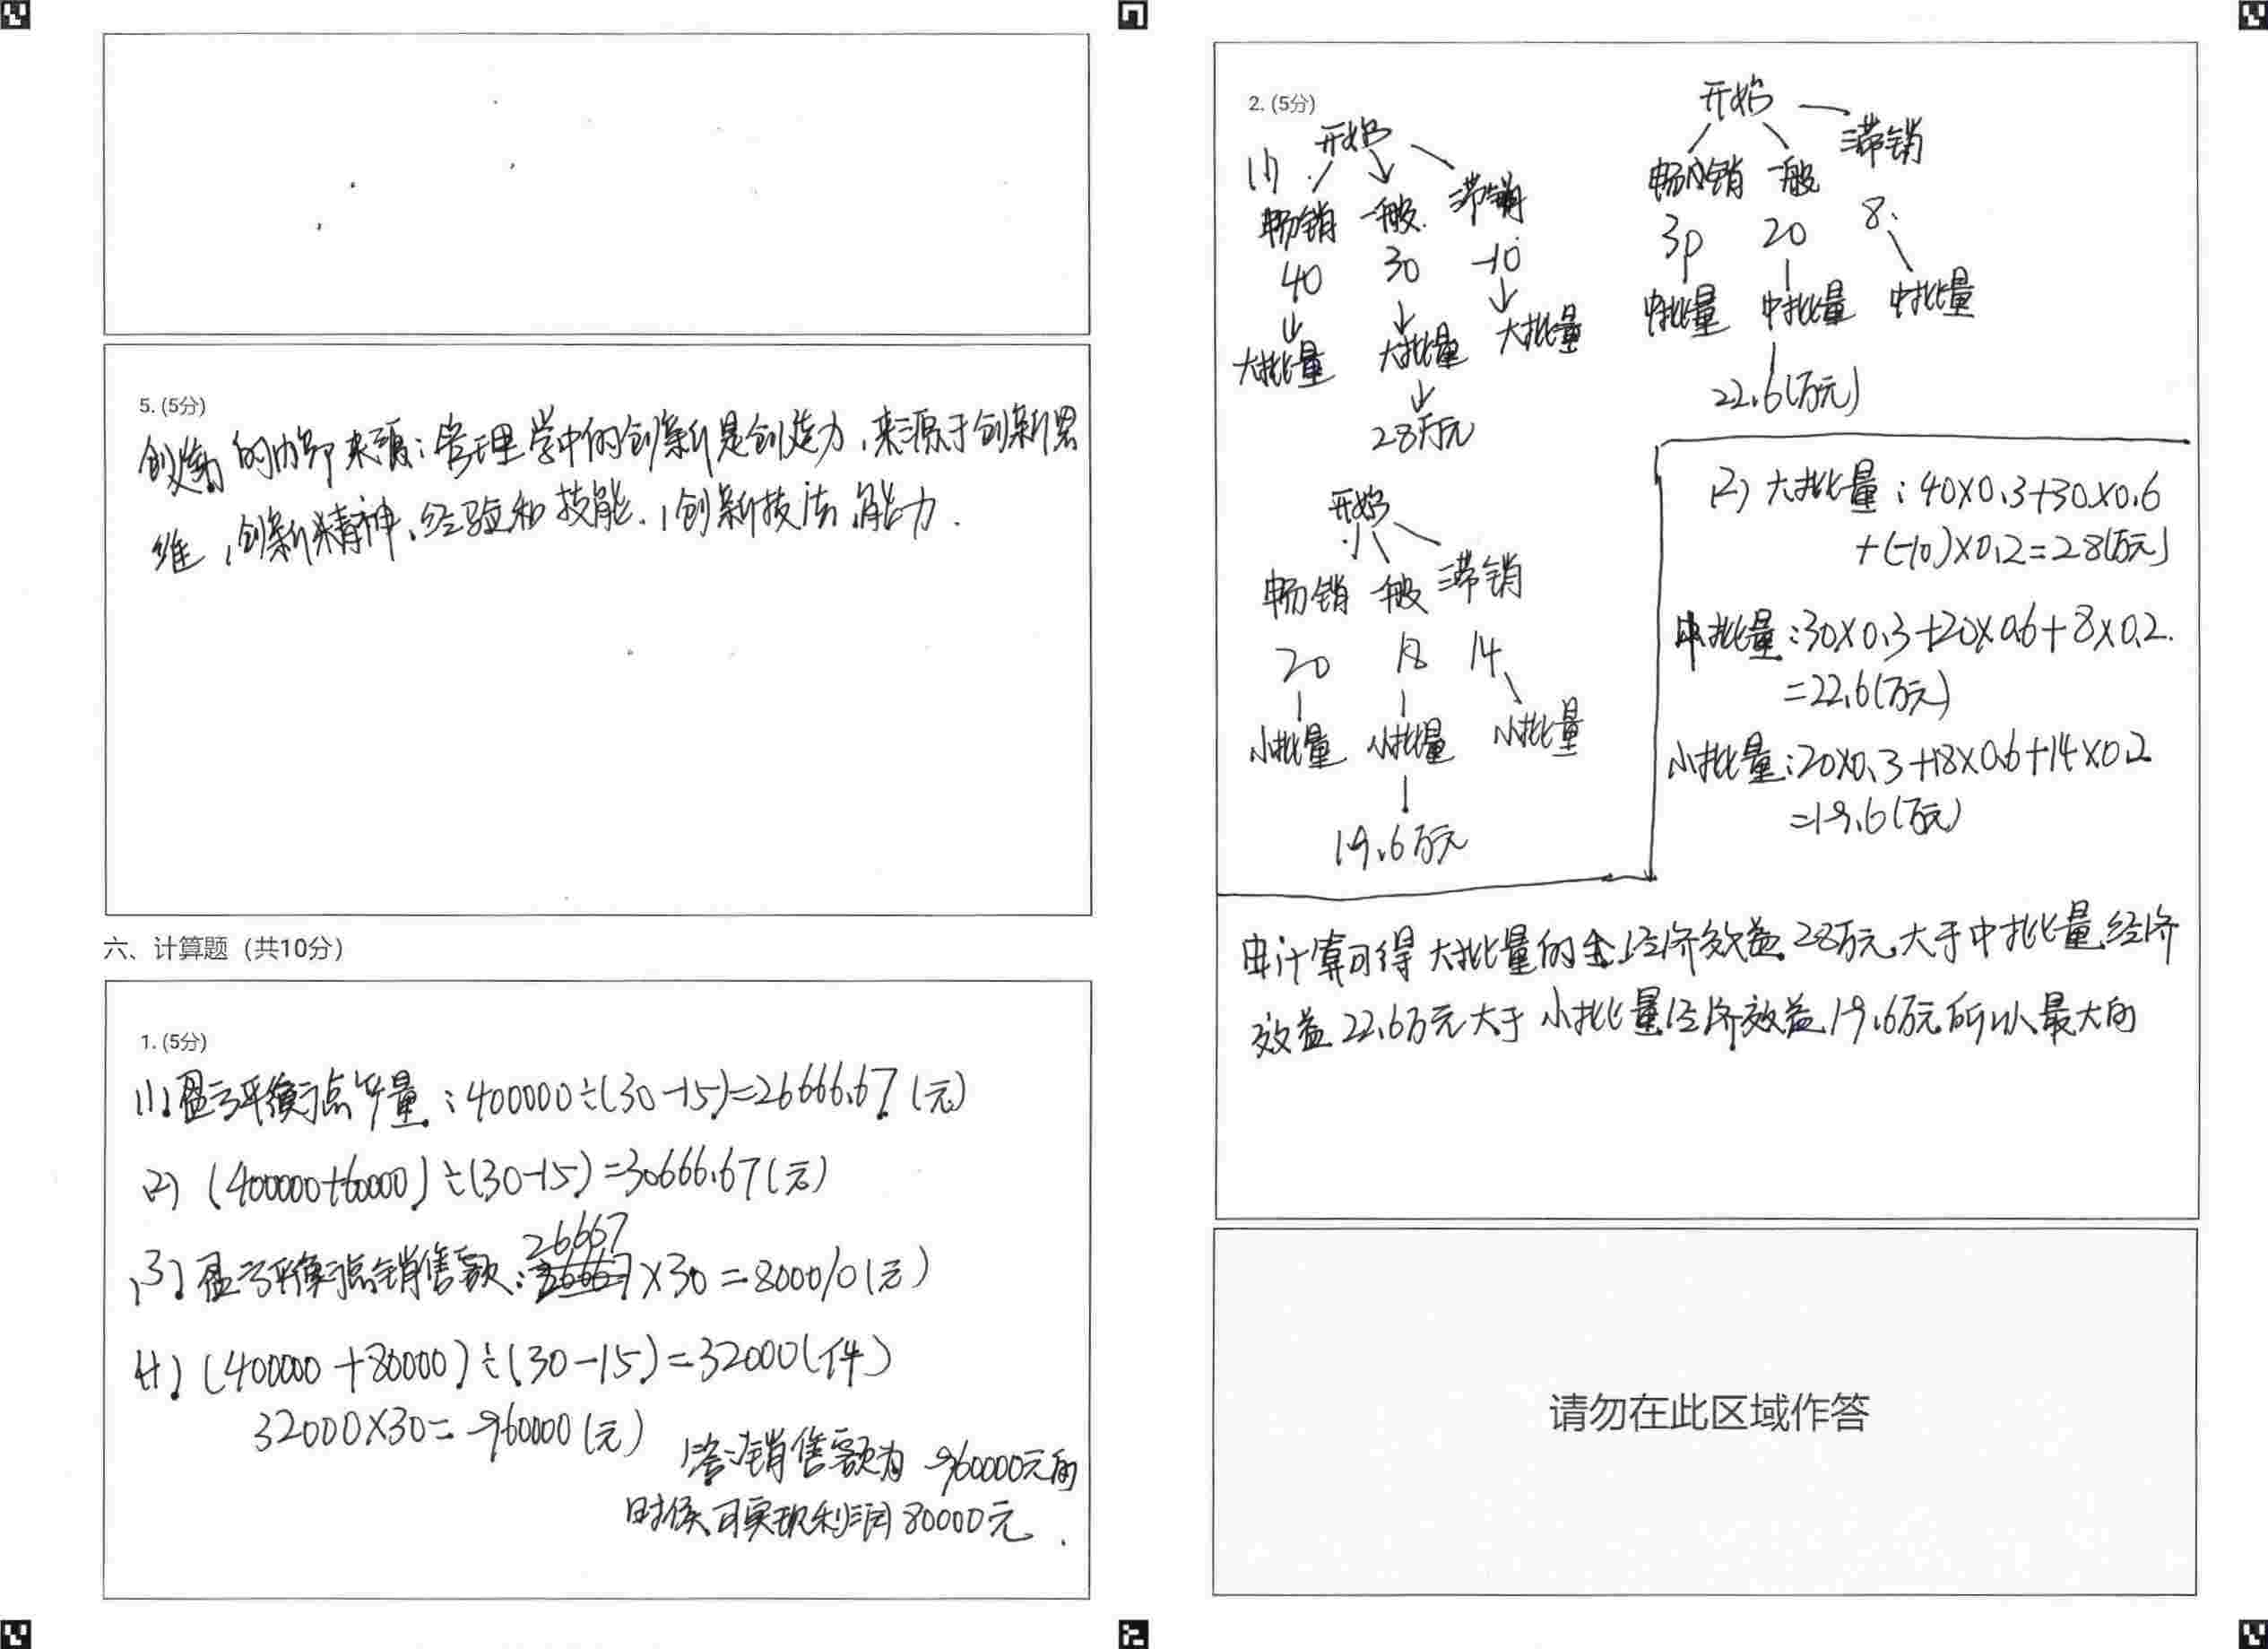 5. (5分)
创新的内部来源:管理学中的创新是创造力,来源于创新思
维,创新精神、经验和技能.,创新技法能力.
六、计算题(共10分)
1. (5分)
(1)盈亏平衡点产量:400000÷(30-15)=26666.67(元)
(2) (400000+60000)÷(30-15)=30666.67(元)
26667
(3)盈亏平衡点销售额:×30=800010(元)
(4)(400000+80000)÷(30-15)=32000(件)
32000×30=960000(元)
答:销售额为960000元的
时候可实现利润80000元.
2. (5分)
(1)
开始
畅销 一般 滞销
40 30 -10
大批量 大批量 大批量
28万元
开始
畅销 一般 滞销
30 20 8
中批量 中批量 中批量
22.6(万元)
开始
畅销 一般 滞销
20 18 14
小批量 小批量 小批量
19.6万元
(2)大批量:40×0.3+30×0.6
+(-10)×0.2=28(万元)
中批量:30×0.3+20×0.6+8×0.2
=22.6(万元)
小批量:20×0.3+18×0.6+14×0.2
=19.6(万元)
由计算可得大批量的经济效益28万元大于中批量经济
效益22.6万元大于小批量经济效益19.6万元所以最大的
请勿在此区域作答